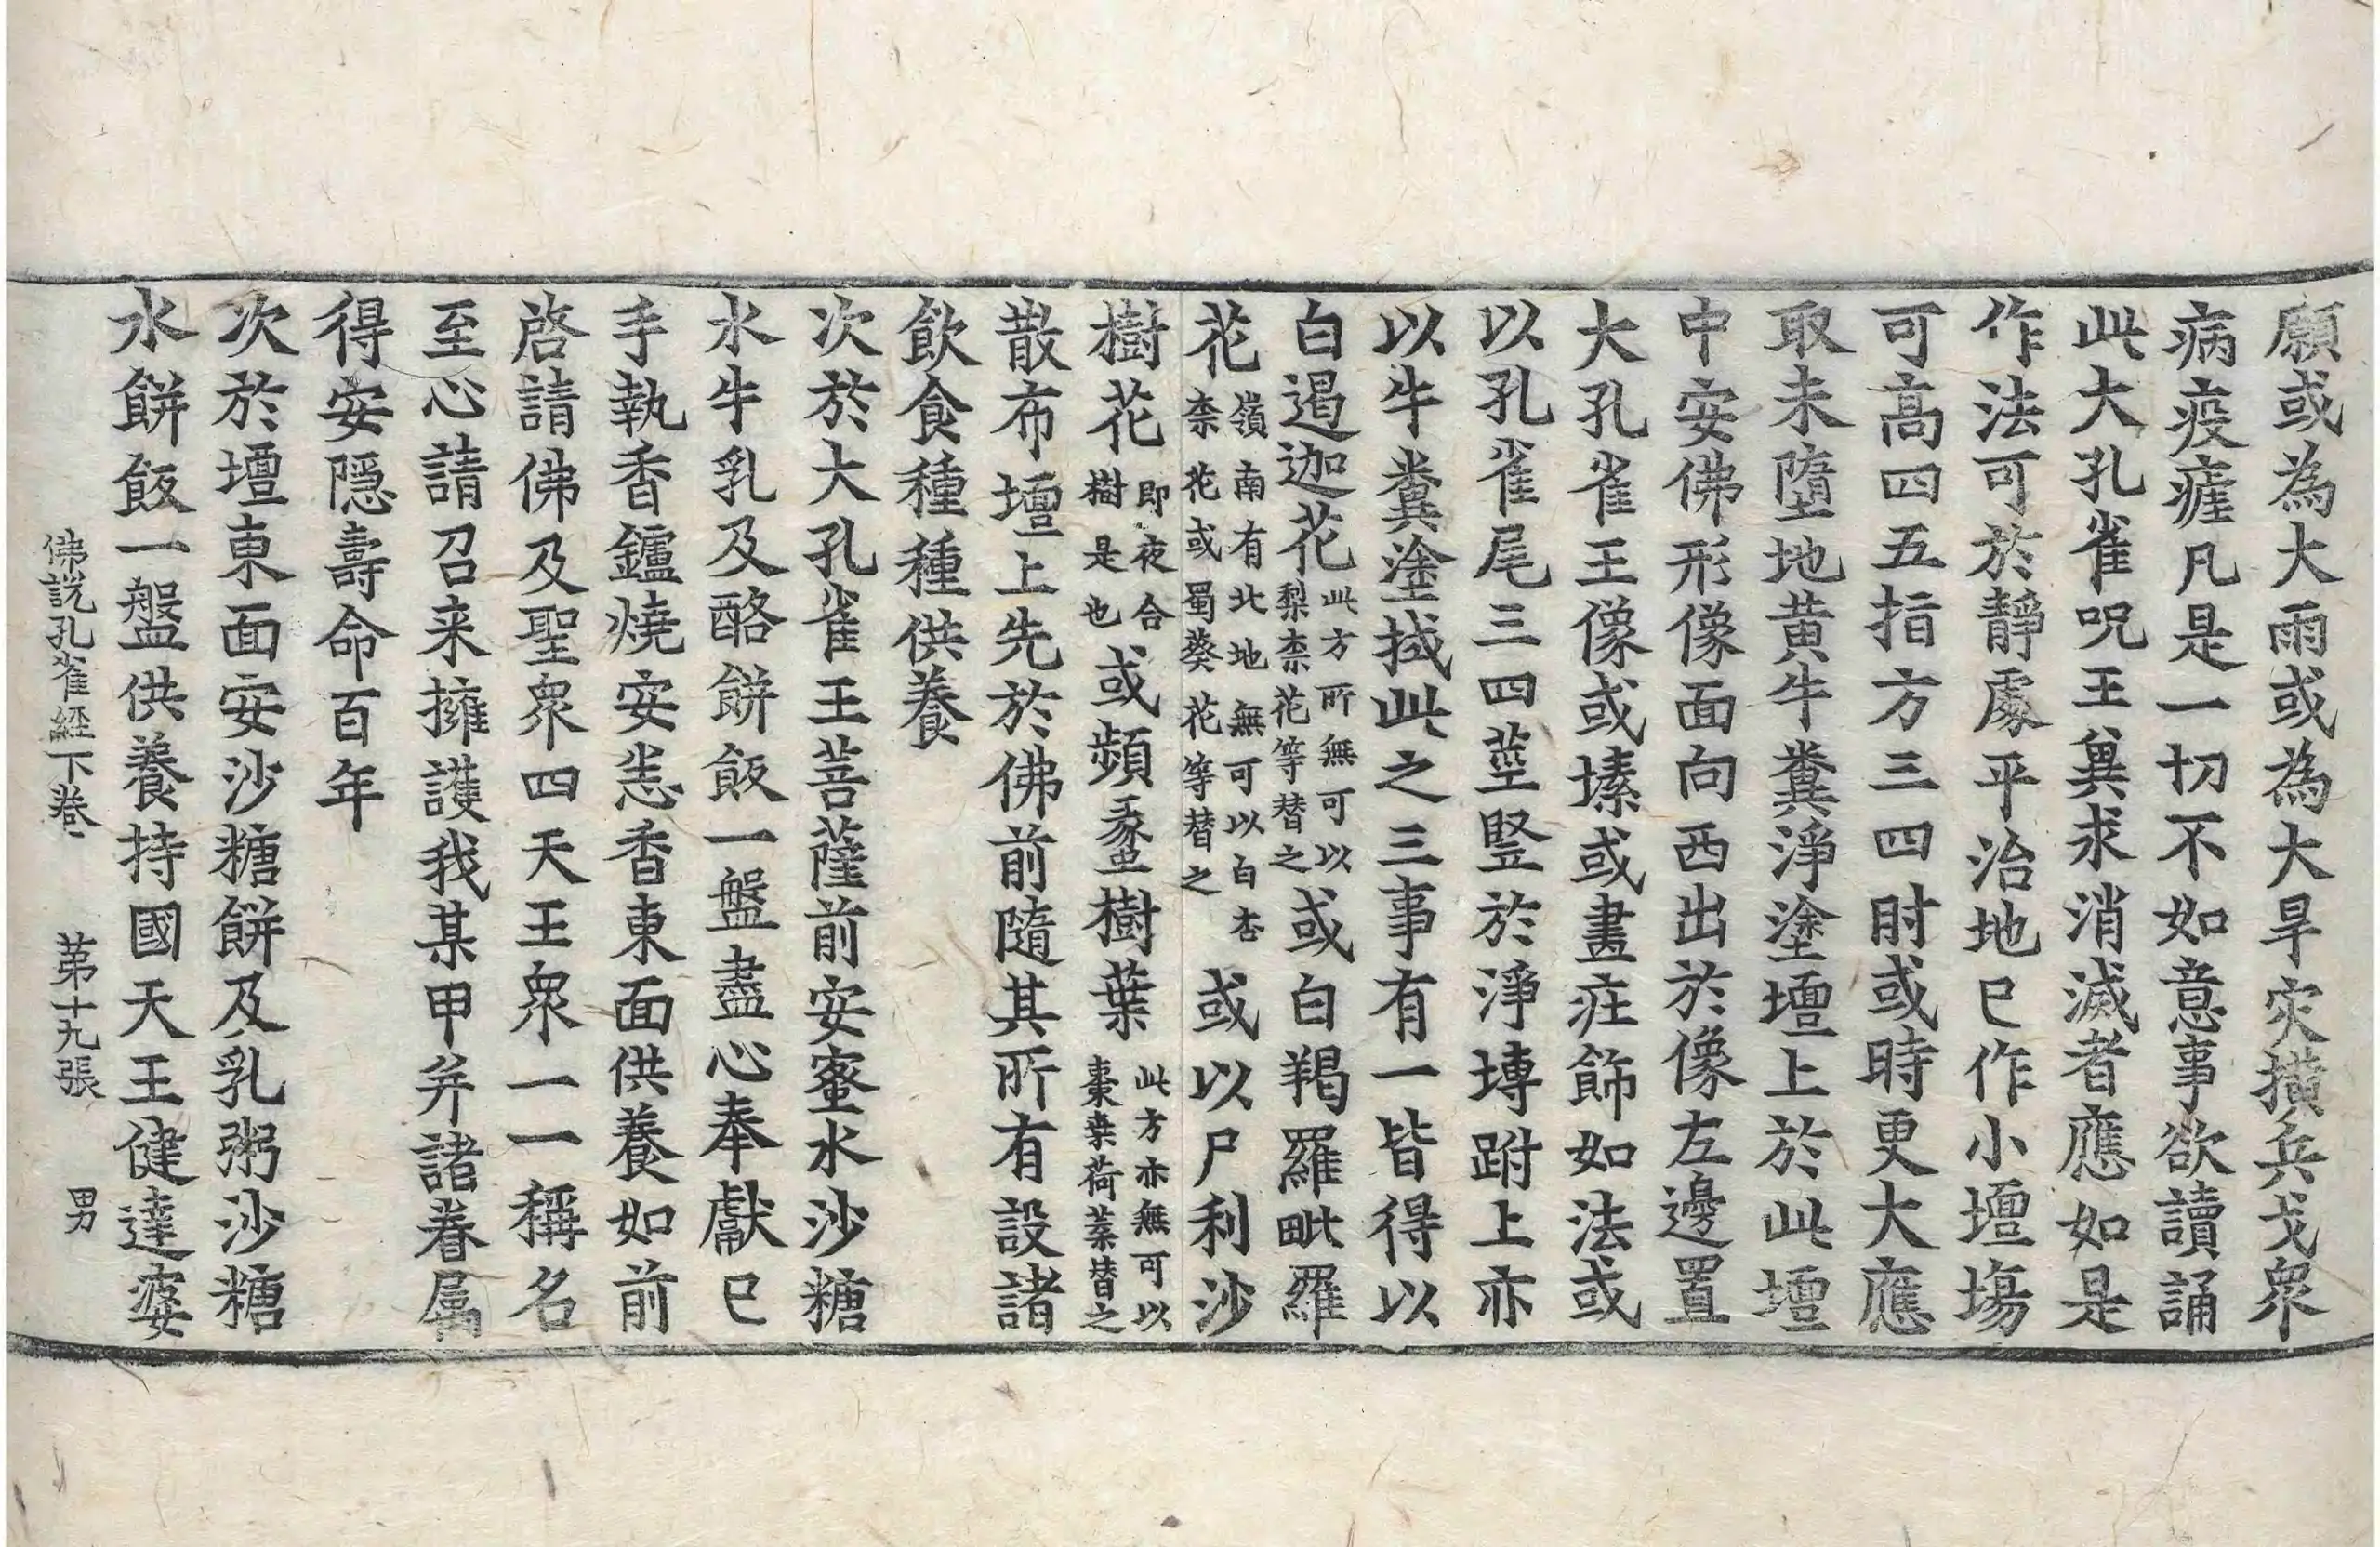 願或為大雨或為大旱灾撗兵戈衆
病疫瘧凡是一切不如意事欲讀誦
此大孔雀呪王兾求消滅者應如是
作法可於靜處平治地已作小壇場
可高四五指方三四肘或時更大應
取未墮地黄牛糞淨塗壇上於此壇
中安佛形像面向西出於像左邊置
大孔雀王像或塐或畫庄飾如法或
以孔雀尾三四莖竪於淨塼跗上亦
以牛糞塗拭此之三事有一皆得以
白遏迦花此方所無可以梨柰花等替之或白羯羅毗羅
花嶺南有北地無可以白杏柰花或蜀葵花等替之或以尸利沙
樹花即夜合樹是也或頻蠡樹葉此方亦無可以棗葉荷葉替之
散布壇上先於佛前隨其所有設諸
飲食種種供養
次於大孔雀王菩薩前安蜜水沙糖
水牛乳及酪餅飯一盤盡心奉獻已
手執香鑪燒安悉香東面供養如前
啓請佛及聖衆四天王衆一一稱名
至心請召来擁護我某甲并諸眷属
得安隱壽命百年
次於壇東面安沙糖餅及乳粥沙糖
水餅飯一盤供養持國天王健達婆
佛說孔雀經下卷 第十九張 男